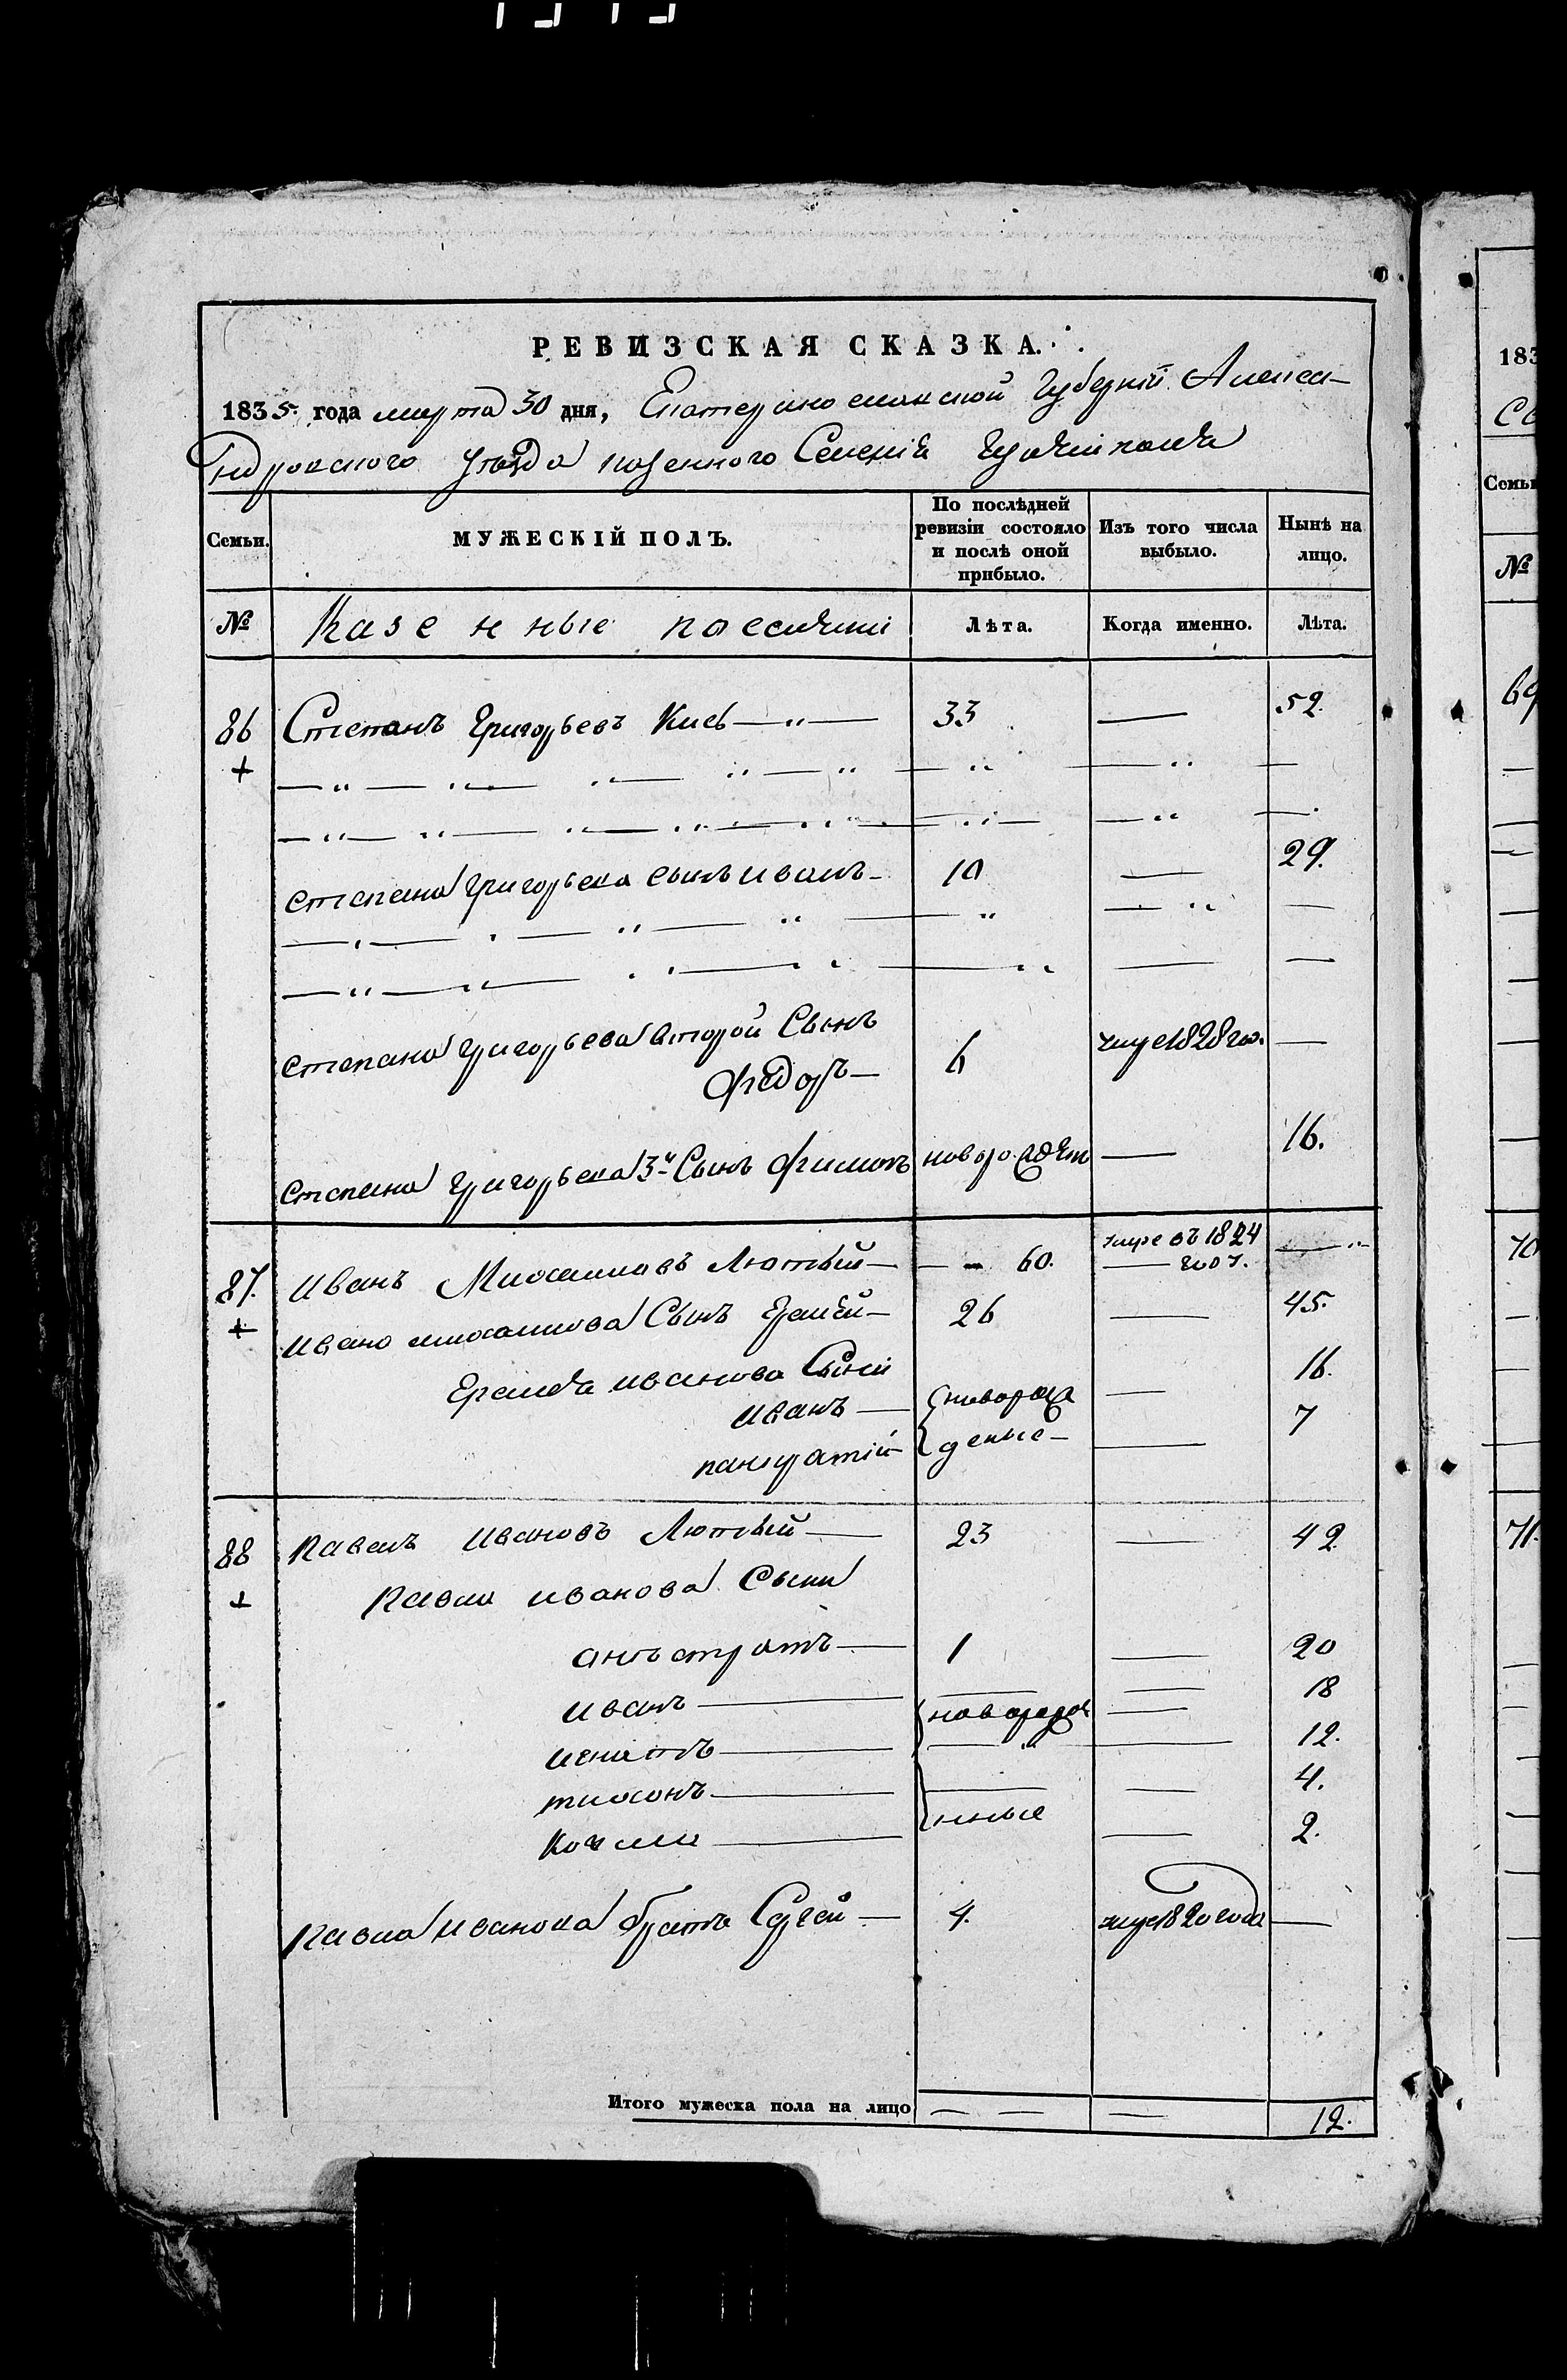 РЕВИЗСКАЯ СКАЗКА.
1835. года марта 30 дня, Екатеринославской Губерніи Алекса-
ндровского уѣзда казенного Селенія
Семьи. МУЖЕСКІЙ ПОЛЪ. По послѣдней ревизіи состояло и послѣ оной прибыло. Изъ того числа выбыло. Нынѣ на лицо.
№ Казенные поселяне Лѣта. Когда именно. Лѣта.
86 Степанъ Григорьевъ Кисъ 33 — 52.
+
Степана Григорьева сынъ иванъ 10 — 29.
Степана Григорьева второй Сынъ
Федоръ 6 умре 1828 го. —
Степана Григорьева 3й Сынъ Филипъ новорожден — 16.
87. Иванъ Михайловъ Лютый — 60. умре въ 1824 году. —
+ Ивана михайлова Сынъ Еремѣй 26 — 45.
Еремѣя иванова Сыни
иванъ новорож — 16.
панкратій деные — 7
88 Павелъ Ивановъ Лютый 23 — 42
+ Павла иванова Сыни
1 — 20
иванъ — 18
игнатъ новорожде — 12.
тихонъ — 4.
Козма нные — 2.
Павла Иванова братъ Сергей 4. умре 1820 года —
Итого мужеска пола на лицо — — — 12.
183
Семьи
№
69
70
71.